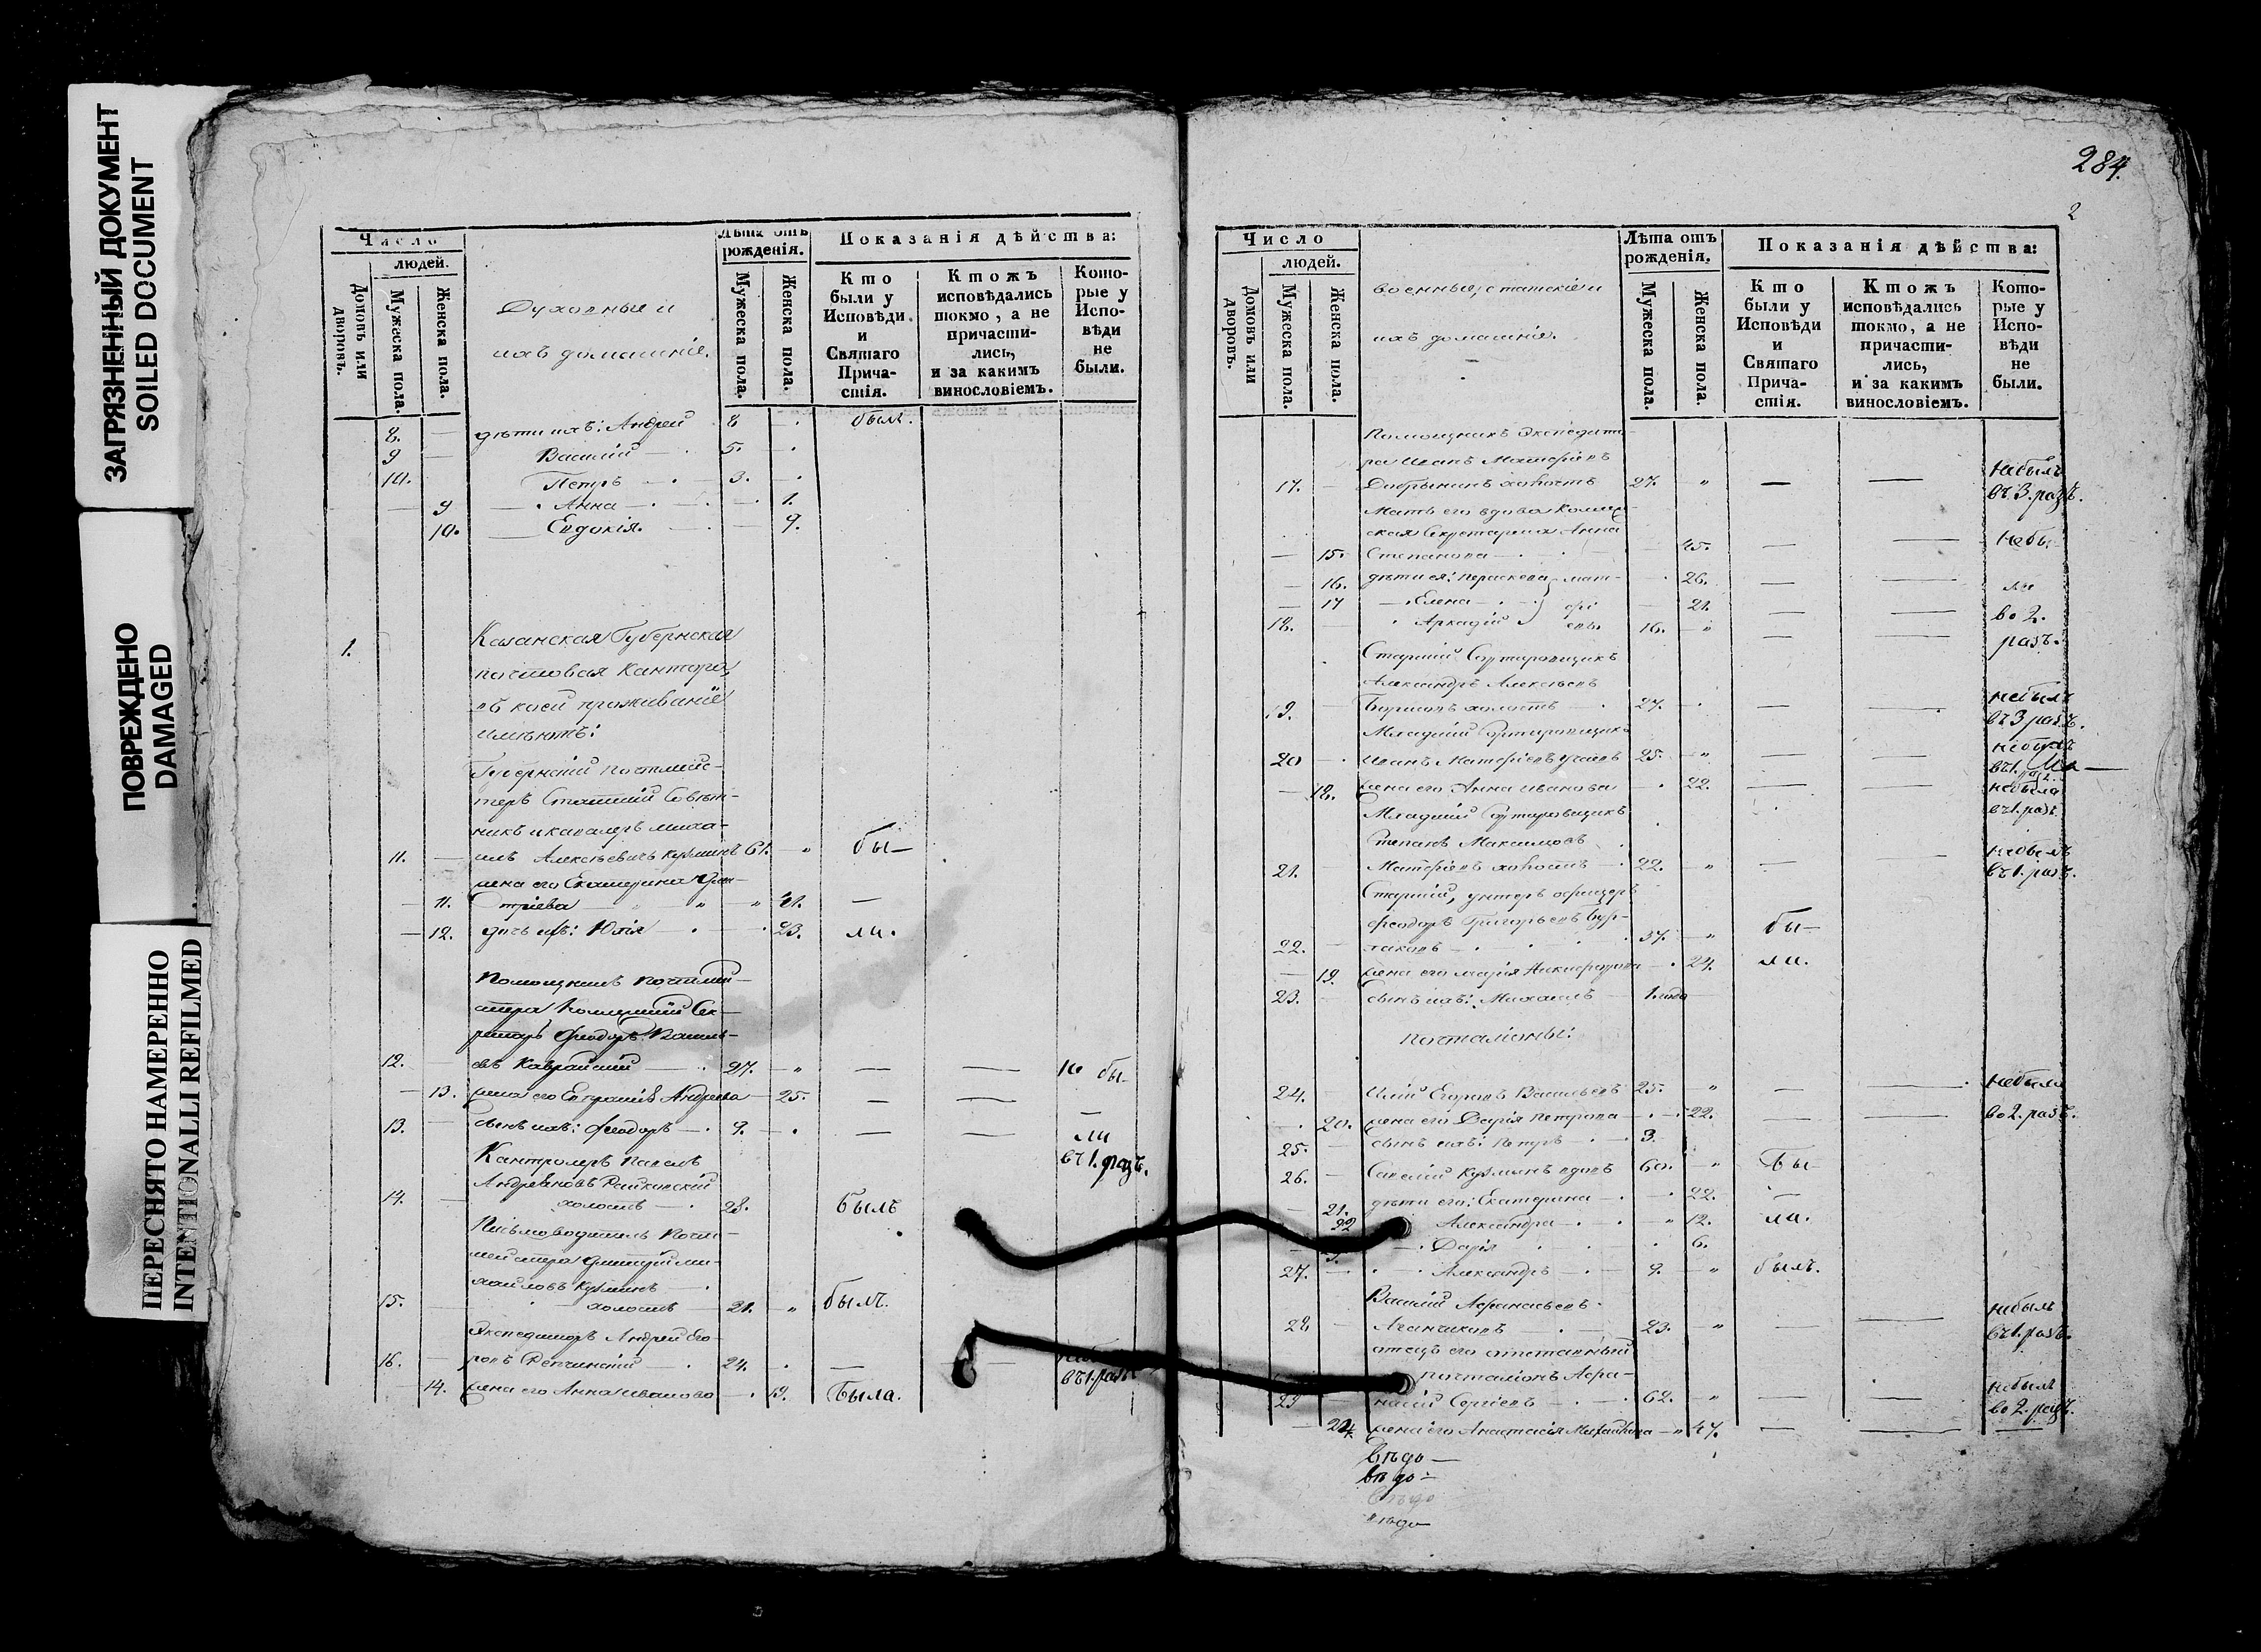 ЗАГРЯЗНЕННЫЙ ДОКУМЕНТ
SOILED DOCUMENT
ПОВРЕЖДЕНО
DAMAGED
ПЕРЕСНЯТО НАМЕРЕННО
INTENTIONALLI REFILMED
Число
людей.
Домовъ или дворовъ.
Мужеска пола.
Женска пола.
Духовные и
ихъ домашніе.
Лѣта отъ рожденія.
Мужеска пола.
Женска пола.
Показанія дѣйства:
Кто были у Исповѣди и Святаго Причастія.
Ктожъ исповѣдались токмо, а не причастились, и за какимъ винословіемъ.
Которые у Исповѣди не были.
8. — дѣти ихъ: Андрей 8 — былъ.
9 — Василій — 5.
10. Петръ — 3.
— 9 — Анна — 1.
10. — Евдокія. — 9.
1. Казанская Губернская
почтовая Кантора,
въ коей проживаніе
имѣютъ:
Губернскій почтмейс-
теръ Статскій Совѣт-
никъ и кавалеръ Миха-
11. — илъ Алексѣевичъ Кузминъ 61. " бы—
жена его Екатерина Дми-
— 11. тріева — " 41. —
— 12. дочь ихъ: Юлія — 23. ли.
Помощникъ Почтмей-
стера Коллежскій Сек-
ретарь Феодоръ Василь-
12. — евъ Каврайскій — 27. " — — не бы-
— 13. жена его Андреева — 25. — — —
13. — сынъ ихъ: Феодоръ — 9. — — ли
Кантролеръ Павелъ въ 1. разъ.
14. — холостъ — 28. былъ
Письмоводитель Почт-
мейстера Дмитрій Ми-
хайловъ Кузминъ —
15. холостъ — 21. " былъ.
Экспедиторъ Андрей Его-
16. — ровъ — 24. —
въ 1. разъ
— 14. жена его Анна Иванова — 19. Была.
284.
2
Число
людей.
Домовъ или дворовъ.
Мужеска пола.
Женска пола.
военные, статскіе и
ихъ домашніе.
Лѣта отъ рожденія.
Мужеска пола.
Женска пола.
Показанія дѣйства:
Кто были у Исповѣди и Святаго Причастія.
Ктожъ исповѣдались токмо, а не причастились, и за какимъ винословіемъ.
Которые у Исповѣди не были.
Помощникъ Экспедито-
ра Иванъ Матвѣевъ небылъ
17. — Добрынинъ холостъ 27. " — — въ 3. разъ.
Мать его вдова Коллеж-
ская Секретарша Анна
— 15. Степанова — 45. — — небы-
— 16. дѣти ея: Параскева мат- 26. — — ли
— 17 — Елена — вѣ 21. — — во 2.
18. Аркадій евы 16. " — — разъ.
Старшій Сортировщикъ
Александръ Алексѣевъ
19. холостъ — 27. — — небылъ въ 3 разъ.
Младшій Сортировщикъ
20 — Иванъ Матвѣевъ 25. " — — небылъ въ 1.
— 18. жена его Анна Иванова 22. — — небыла
Младшій Сортировщикъ въ 1. разъ
Степанъ Максимовъ
21. — Матвѣевъ холостъ 22. " — — небылъ въ 1. разъ.
Старшій, унтеръ офицеръ
Феодоръ Григорьевъ Бур-
22. — лаковъ — 37. " бы—
— 19. жена его Марія Никифорова — 24. ли.
23. — сынъ ихъ: Михаилъ — 1. года
Почталіоны:
24. — Егоровъ Васильевъ 25. " — — небыли
20. жена его Дарія Петрова — 22. — — во 2. разъ.
25. — сынъ ихъ: Петръ — 3.
26. — Савелій Кузминъ вдовъ 60. " Бы—
— 21. дѣти его: Екатерина — 22. —
22 Александра — " 12. ли.
— Дарія 6.
27. — Александръ — 9. " былъ.
Василій Афанасьевъ
28 — — 23. " — — небылъ въ 1. разъ.
отецъ его отставный
почталіонъ Афа-
29 — насій Сергіевъ — 62. " — — небылъ во 2. разъ.
— 24. жена его Анастасія Михайлова — " 47. — — —
вѣдо—
вѣдо—
вѣдо
вѣдо—